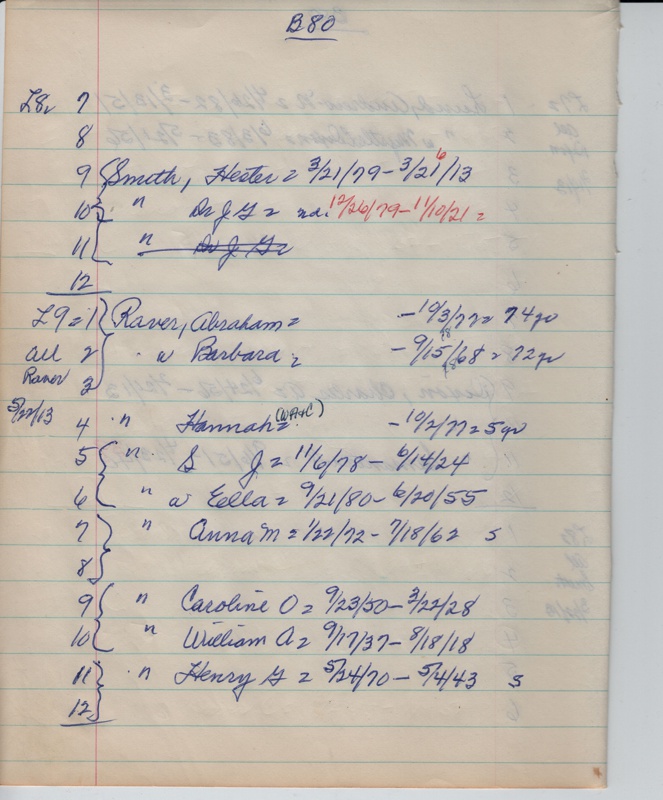 B80
L8 7
8
9 { Smith, Hester = 3/21/79 - 3/21/13 6
10 " Dr J G = nd. 12/26/79 - 11/10/21 =
11 " Dr J. G =
12
L9 = 1 } Raver, Abraham = - 10/3/77 = 74yr
all 2 " w Barbara = - 9/15/68 = 72yr 18 18
Raver 3
5/22/13 4 " Hannah = (W A+C) - 10/2/77 = 5yr
5 { " S J = 11/6/78 - 6/14/24
6 " w Eella = 9/21/80 - 6/20/55
7 } " Anna M = 1/22/72 - 7/18/62 s
8
9 { " Caroline O = 9/23/50 - 3/22/28
10 " William A = 9/17/37 - 8/18/18
11 } " Henry G = 5/24/70 - 5/4/43 s
12